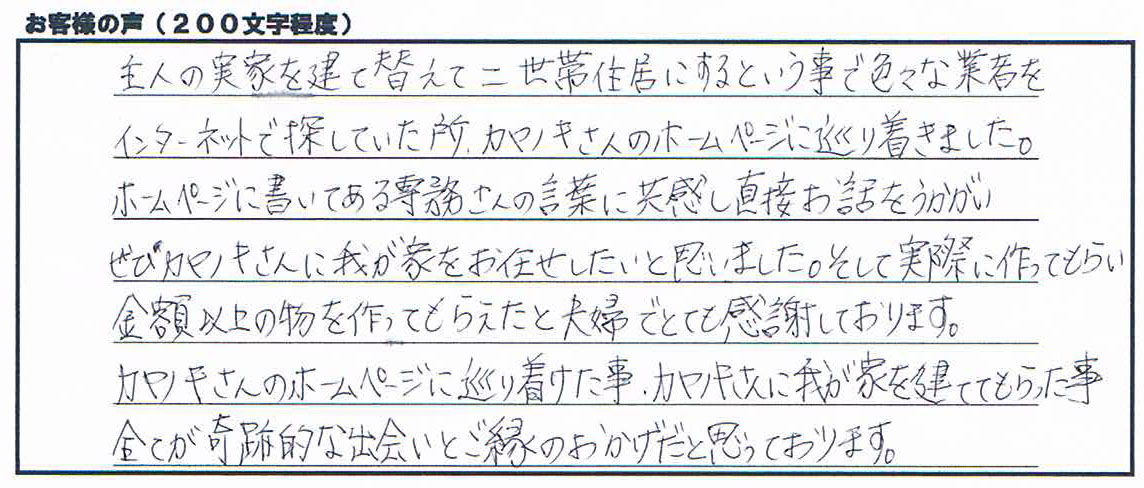 お客様の声（２００文字程度）
主人の実家を建て替えて二世帯住居にするという事で色々な業者を
インターネットで探していた所、カヤノキさんのホームページに巡り着きました。
ホームページに書いてある専務さんの言葉に共感し直接お話をうかがい
ぜひカヤノキさんに我が家をお任せしたいと思いました。そして実際に作ってもらい
金額以上の物を作ってもらえたと夫婦でとても感謝しております。
カヤノキさんのホームページに巡り着けた事、カヤノキさんに我が家を建ててもらった事
全てが奇跡的な出会いとご縁のおかげだと思っております。